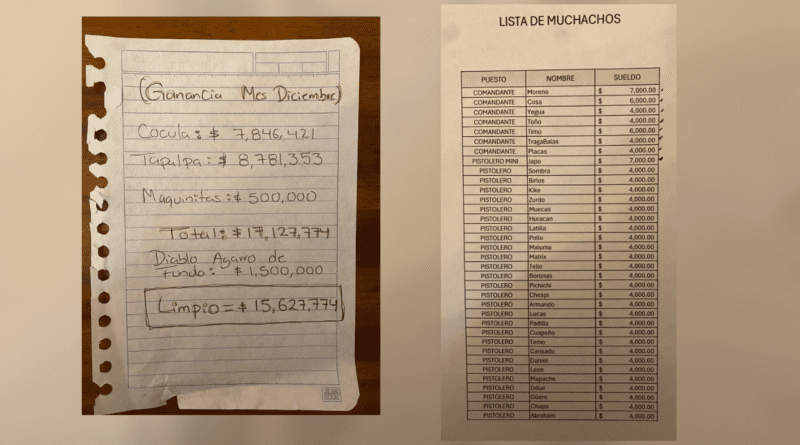 (Ganancia Mes Diciembre)
Cocula: $ 7,846,421
Tapalpa: $ 8,781,353
Maquinitas: $ 500,000
Total: $ 17,127,774
Diablo Agarro de
fondo: $ 1,500,000
Limpio = $ 15,627,774
LISTA DE MUCHACHOS
PUESTO NOMBRE SUELDO
COMANDANTE Moreno $ 7,000.00
COMANDANTE Cosa $ 6,000.00
COMANDANTE Yegua $ 4,000.00
COMANDANTE Toño $ 4,000.00
COMANDANTE Timo $ 6,000.00
COMANDANTE TragaBalas $ 4,000.00
COMANDANTE Placas $ 4,000.00
PISTOLERO MINI Japo $ 7,000.00
PISTOLERO Sombra $ 4,000.00
PISTOLERO $ 4,000.00
PISTOLERO Kike $ 4,000.00
PISTOLERO Zurdo $ 4,000.00
PISTOLERO Muecas $ 4,000.00
PISTOLERO Huracan $ 4,000.00
PISTOLERO Latilla $ 4,000.00
PISTOLERO Pollo $ 4,000.00
PISTOLERO Maluma $ 4,000.00
PISTOLERO Matrix $ 4,000.00
PISTOLERO Tello $ 4,000.00
PISTOLERO $ 4,000.00
PISTOLERO Pichichi $ 4,000.00
PISTOLERO Chespi $ 4,000.00
PISTOLERO Armando $ 4,000.00
PISTOLERO Lucas $ 4,000.00
PISTOLERO Padilla $ 4,000.00
PISTOLERO Cuapeño $ 4,000.00
PISTOLERO Temo $ 4,000.00
PISTOLERO Cansado $ 4,000.00
PISTOLERO Daniel $ 4,000.00
PISTOLERO $ 4,000.00
PISTOLERO Mapache $ 4,000.00
PISTOLERO $ 4,000.00
PISTOLERO Güero $ 4,000.00
PISTOLERO Chapo $ 4,000.00
PISTOLERO Abraham $ 4,000.00